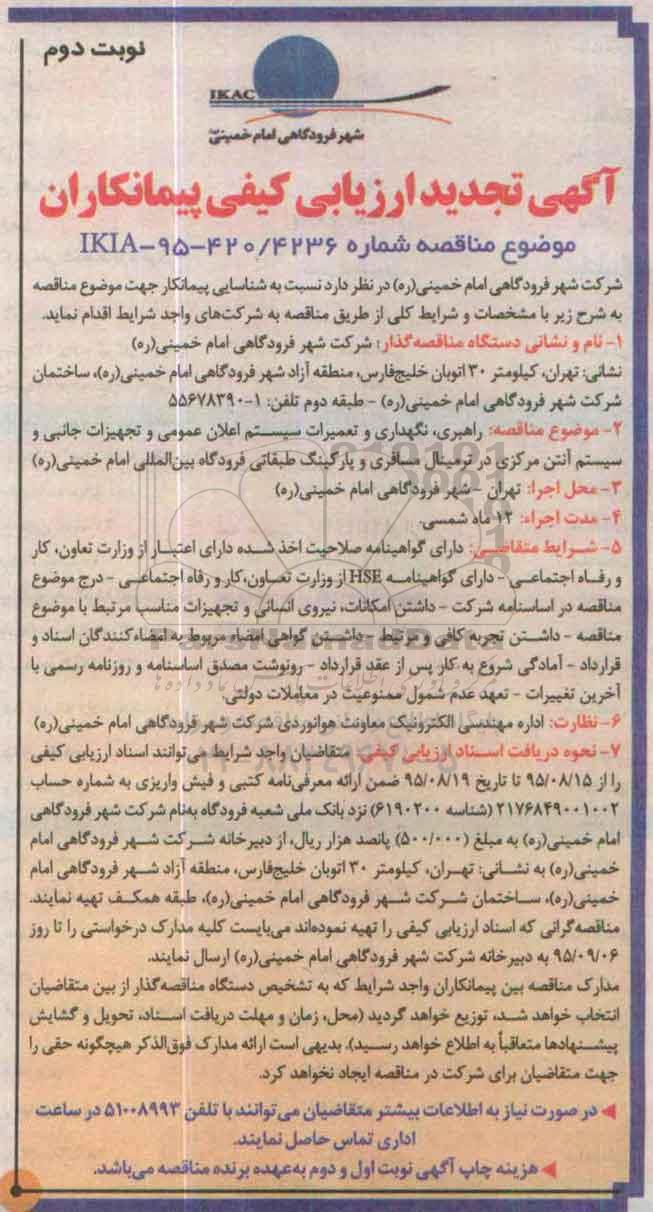 نوبت دوم
IKAC
شهر فرودگاهی امام خمینی(ره)
آگهی تجدید ارزیابی کیفی پیمانکاران
موضوع مناقصه شماره ۴۲۰/۴۲۳۶-۹۵-IKIA
شرکت شهر فرودگاهی امام خمینی(ره) در نظر دارد نسبت به شناسایی پیمانکار جهت موضوع مناقصه
به شرح زیر با مشخصات و شرایط کلی از طریق مناقصه به شرکت‌های واجد شرایط اقدام نماید.
۱- نام و نشانی دستگاه مناقصه‌گذار: شرکت شهر فرودگاهی امام خمینی(ره)
نشانی: تهران، کیلومتر ۳۰ اتوبان خلیج‌فارس، منطقه آزاد شهر فرودگاهی امام خمینی(ره)، ساختمان
شرکت شهر فرودگاهی امام خمینی(ره) - طبقه دوم تلفن: ۱-۵۵۶۷۸۳۹۰
۲- موضوع مناقصه: راهبری، نگهداری و تعمیرات سیستم اعلان عمومی و تجهیزات جانبی و
سیستم آنتن مرکزی در ترمینال مسافری و پارکینگ طبقاتی فرودگاه بین‌المللی امام خمینی(ره)
۳- محل اجرا: تهران - شهر فرودگاهی امام خمینی(ره)
۴- مدت اجراء: ۱۲ ماه شمسی.
۵- شرایط متقاضی: دارای گواهینامه صلاحیت اخذ شده دارای اعتبار از وزارت تعاون، کار
و رفاه اجتماعی - دارای گواهینامه HSE از وزارت تعاون، کار و رفاه اجتماعی - درج موضوع
مناقصه در اساسنامه شرکت - داشتن امکانات، نیروی انسانی و تجهیزات مناسب مرتبط با موضوع
مناقصه - داشتن تجربه کافی و مرتبط - داشتن گواهی امضاء مربوط به امضاءکنندگان اسناد و
قرارداد - آمادگی شروع به کار پس از عقد قرارداد - رونوشت مصدق اساسنامه و روزنامه رسمی با
آخرین تغییرات - تعهد عدم شمول ممنوعیت در معاملات دولتی.
۶- نظارت: اداره مهندسی الکترونیک معاونت هوانوردی شرکت شهر فرودگاهی امام خمینی(ره)
۷- نحوه دریافت اسناد ارزیابی کیفی: متقاضیان واجد شرایط می‌توانند اسناد ارزیابی کیفی
را از ۹۵/۰۸/۱۵ تا تاریخ ۹۵/۰۸/۱۹ ضمن ارائه معرفی‌نامه کتبی و فیش واریزی به شماره حساب
۲۱۷۶۸۴۹۰۰۱۰۰۲ (شناسه ۶۱۹۰۲۰۰) نزد بانک ملی شعبه فرودگاه به‌نام شرکت شهر فرودگاهی
امام خمینی(ره) به مبلغ (۵۰۰/۰۰۰) پانصد هزار ریال، از دبیرخانه شرکت شهر فرودگاهی امام
خمینی(ره) به نشانی: تهران، کیلومتر ۳۰ اتوبان خلیج‌فارس، منطقه آزاد شهر فرودگاهی امام
خمینی(ره)، ساختمان شرکت شهر فرودگاهی امام خمینی(ره)، طبقه همکف تهیه نمایند.
مناقصه‌گرانی که اسناد ارزیابی کیفی را تهیه نموده‌اند می‌بایست کلیه مدارک درخواستی را تا روز
۹۵/۰۹/۰۶ به دبیرخانه شرکت شهر فرودگاهی امام خمینی(ره) ارسال نمایند.
مدارک مناقصه بین پیمانکاران واجد شرایط که به تشخیص دستگاه مناقصه‌گذار از بین متقاضیان
انتخاب خواهد شد، توزیع خواهد گردید (محل، زمان و مهلت دریافت اسناد، تحویل و گشایش
پیشنهادها متعاقباً به اطلاع خواهد رسید). بدیهی است ارائه مدارک فوق‌الذکر هیچگونه حقی را
جهت متقاضیان برای شرکت در مناقصه ایجاد نخواهد کرد.
در صورت نیاز به اطلاعات بیشتر متقاضیان می‌توانند با تلفن ۵۱۰۰۸۹۹۳ در ساعت
اداری تماس حاصل نمایند.
هزینه چاپ آگهی نوبت اول و دوم به‌عهده برنده مناقصه می‌باشد.